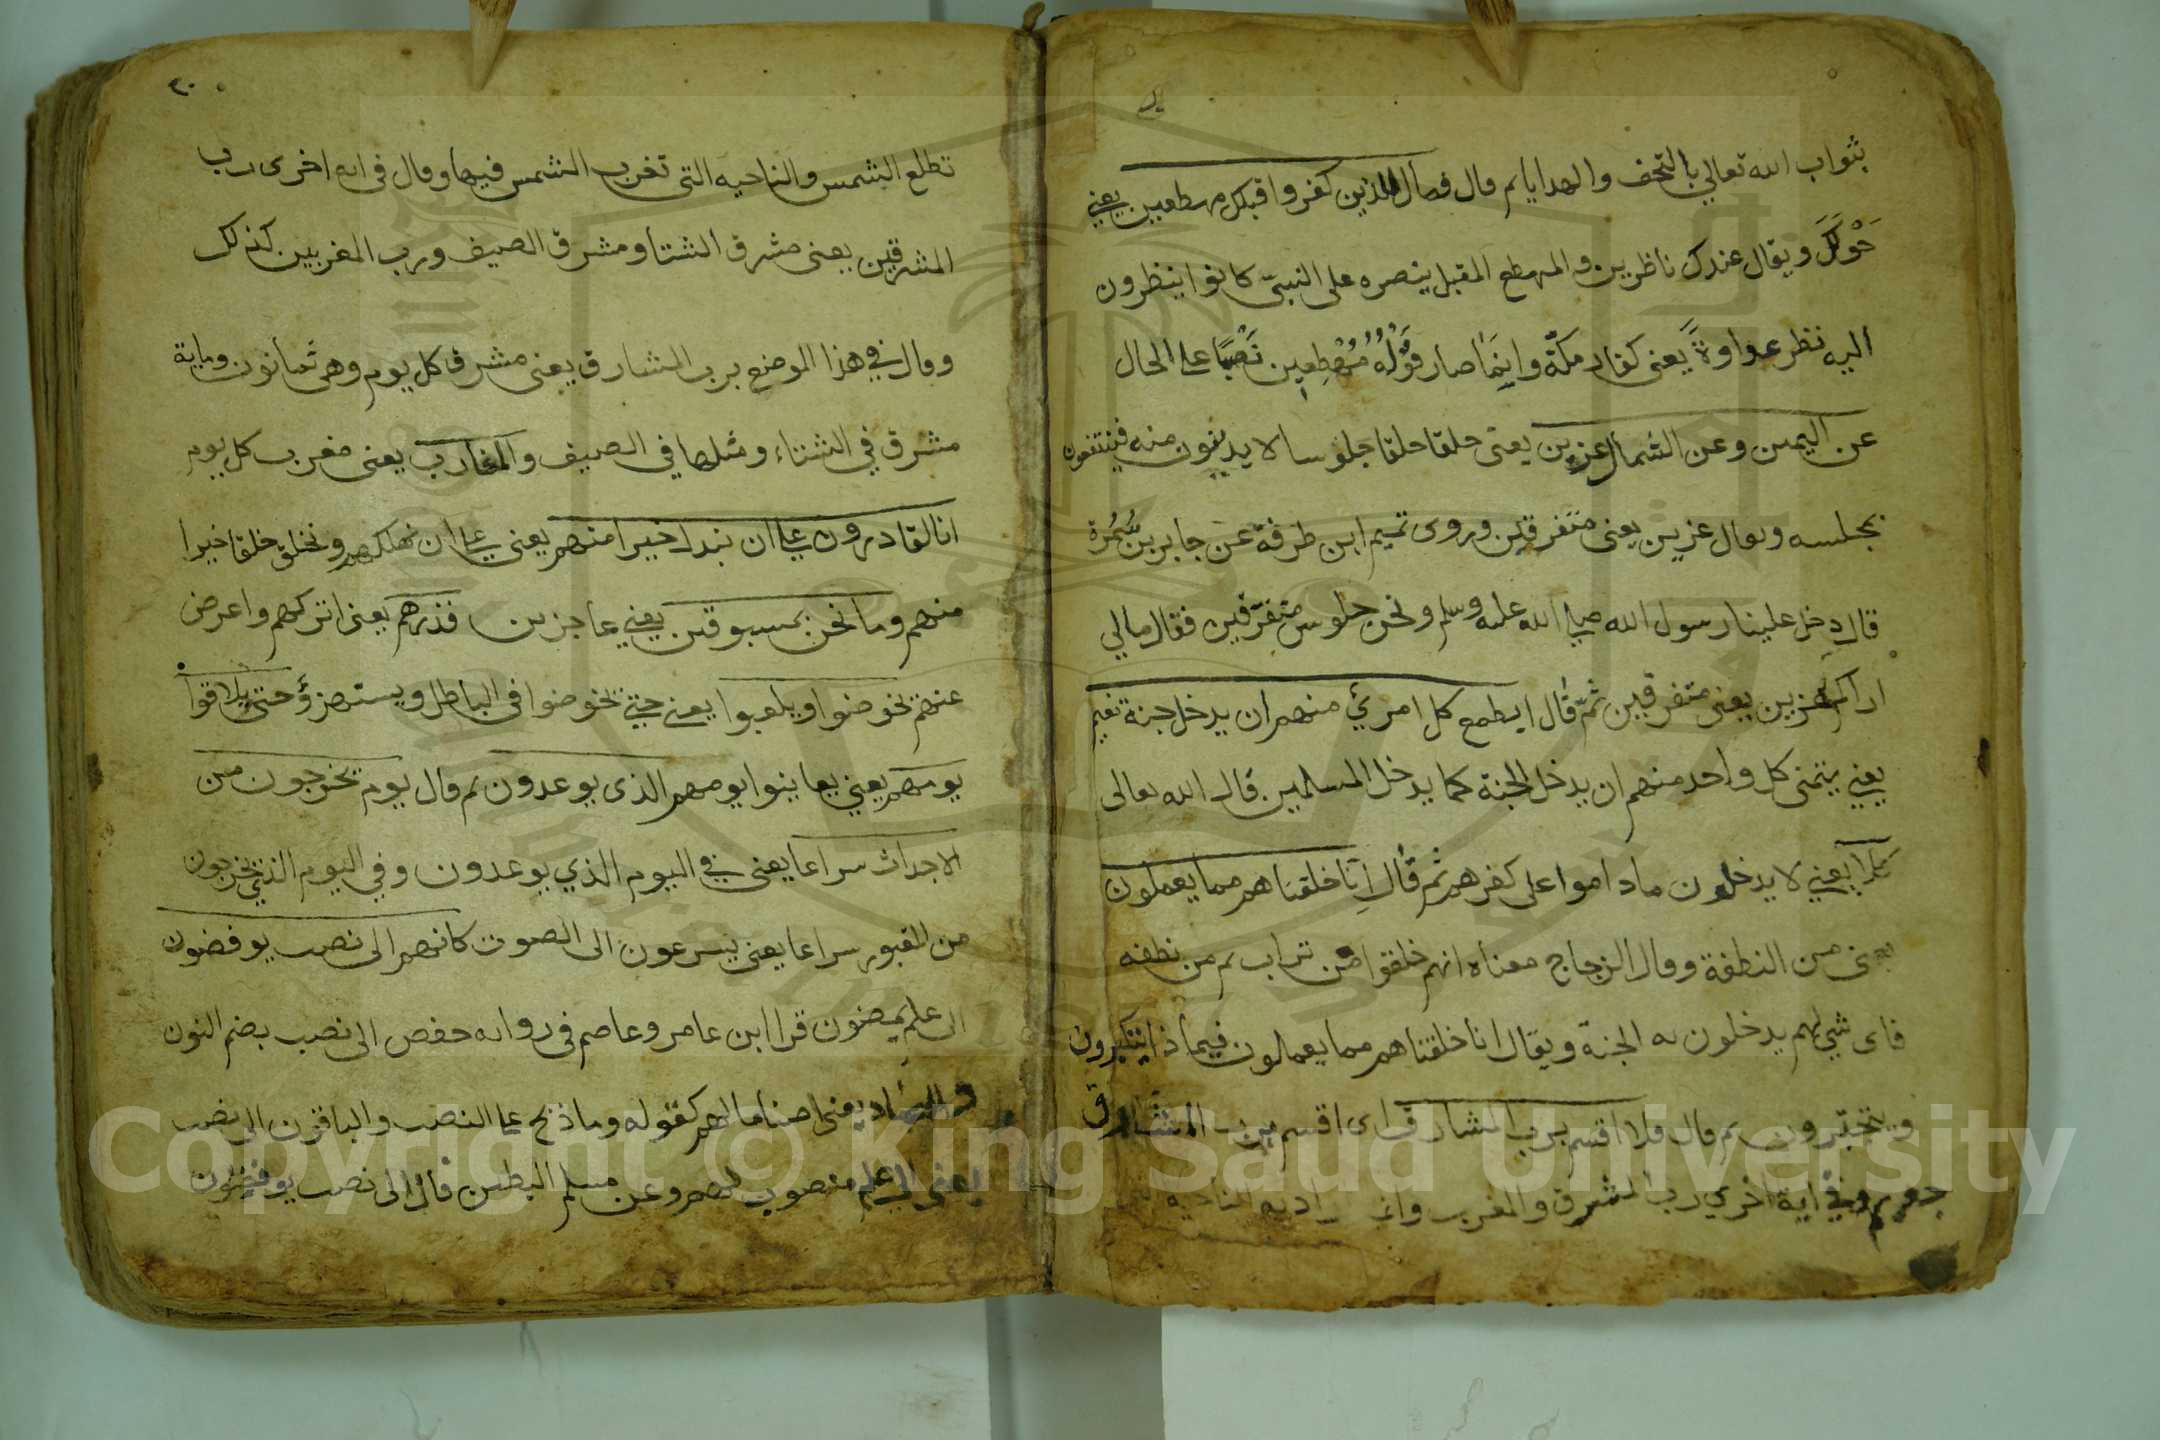 بثواب الله تعالي بالتحف والهدايا ثم قال فمال الذين كفروا قبلك مهطعين يعني
حَوْلَكَ ويقال عندك ناظرين والمهطع المقبل ببصره على النبىّ كانوا ينظرون
اليه نظر عداوةً يعنى كفار مكّة وانِمَا صار قوْلُهُ مُهْطِعِين نَصْبًا على الحال
عن اليمين وعن الشمال عزين يعنى حلقا حلقا جلوسا لا يدنون منه فينتفعون
بمجلسه ويقال عزين يعنى متفرقين وروى تميم ابن طرفة عن جابر بن سُمُرة
قال دخل علينا رسول الله صلى الله عليه وسلم ونحن جلوس متفرّقين فقال مالي
اراكم عزين يعنى متفرقين ثمّ قال ايطمع كل امرئ منهم ان يدخل جنة نعيم
يعني يتمنى كل واحد منهم ان يدخل الجنة كما يدخل المسلمين قال الله تعالى
كلا يعني لا يدخلون ماداموا على كفرهم ثم قال اِنّا خلقناهم مما يعملون
يعنى من النطفة وقال الزجاج معناه انهم خلقوا من تراب ثم من نطفه
فاى شي لهم يدخلون به الجنة ويقال انا خلقناهم مما يعملون فيماذا يتكبرون
ويتجبّرون ثم قال فلا اقسم برب المشارق اى اقسم برب المشارق
وفي اية اخري رب المشرق والمغرب وانما اراد به الناحية
٣٠
تطلع الشمس والناحيه التى تغرب الشمس فيها وقال فى ايه اخرى رب
المشرقين يعنى مشرق الشتا ومشرق الصيف ورب المغربين كذلك
وقال في هذا الموضع برب المشارق يعنى مشرق كل يوم وهى ثمانون وماية
مشرق في الشتاء ومثلها في الصيف والمغارب يعنى مغرب كل يوم
انا لقادرون على ان نبدل خيرا منهم يعنى على ان نهلكهم ونخلق خلقا خيرا
منهم وما نحن بمسبوقين يعني عاجزين فذرهم يعنى اتركهم واعرض
عنهم يخوضوا ويلعبوا يعنى حتى يخوضوا فى الباطل ويستهزؤ حتى يلاقوا
يومهم يعني يعاينوا يومهم الذى يوعدون ثم قال يوم يخرجون من
الاجداث سراعا يعنى في اليوم الذي يوعدون وفي اليوم الذي يخرجون
من القبور سراعا يعنى يسرعون الى الصوت كانهم الى نصب يوفضون
الى علم يمضون قرا ابن عامر وعاصم فى روايه حفص الى نصب بضم النون
والصاد يعنى اصناما لهم كقوله وما ذبح على النصب والباقون الى نصب
يعنى الى علم منصوب لهم وعن مسلم البطين قال الى نصب يوفضون
Copyright © King Saud University